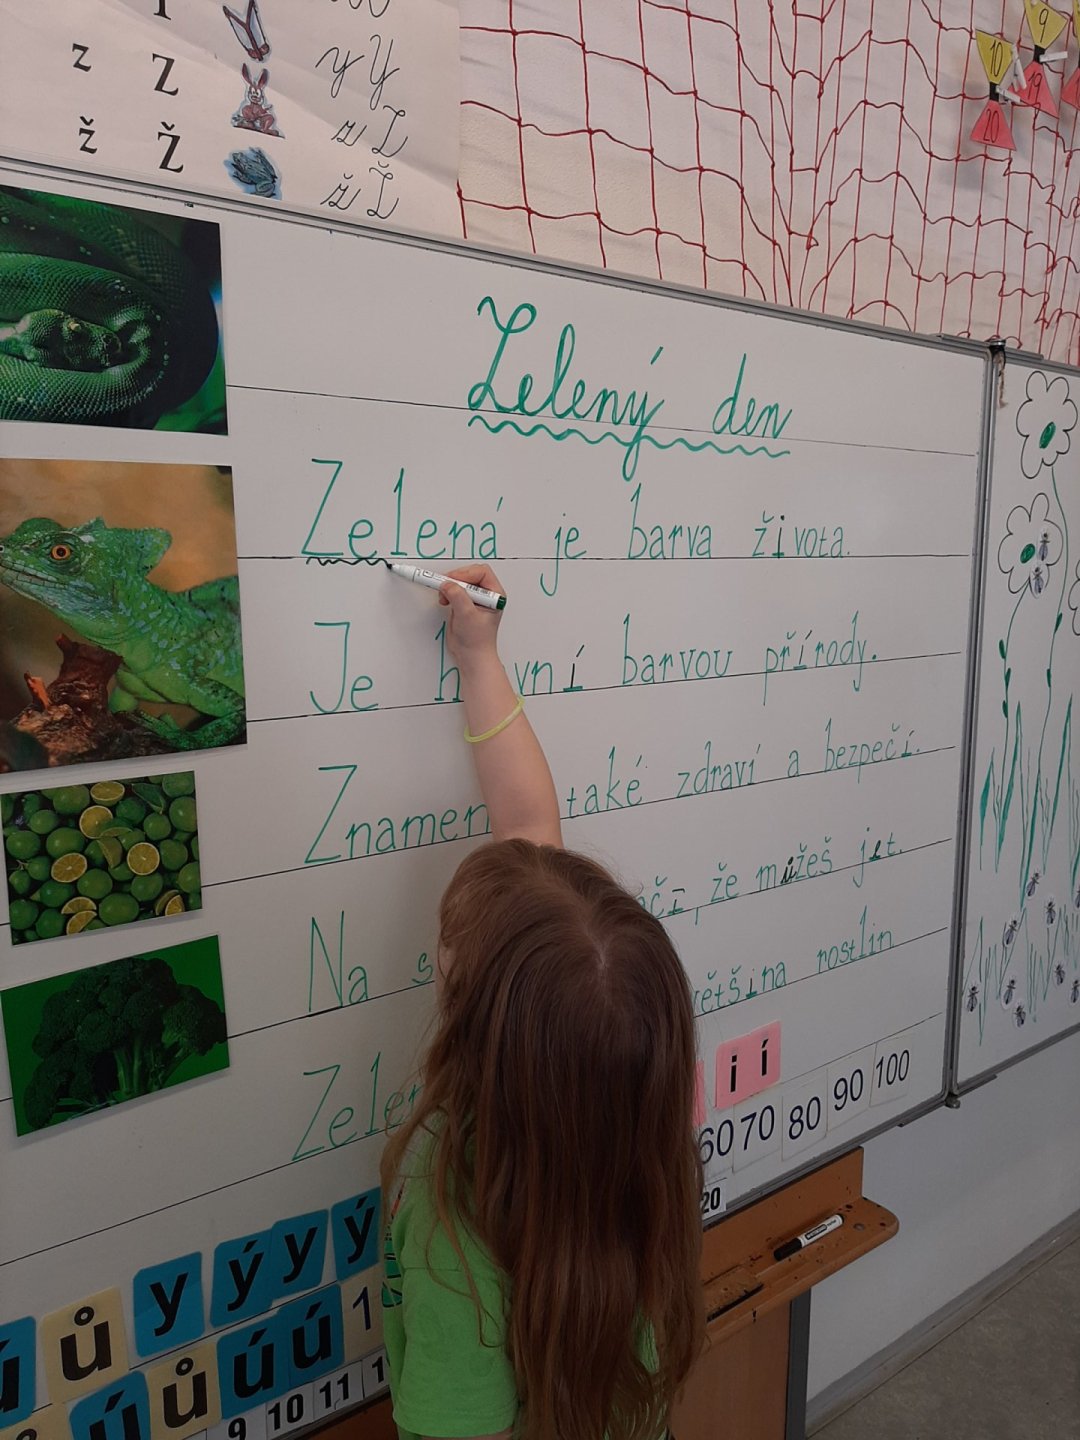 z Z y Y z Z
ž Ž ž Ž
9
10
19
20
Zelený den
Zelená je barva života.
Je h vní barvou přírody.
Znamen také zdraví a bezpečí.
Na s ačí, že můžeš jet.
Zele většina rostlin
i í
60 70 80 90 100
20
ů y ý y ý
ú ů ú ú 1
9 10 11 1